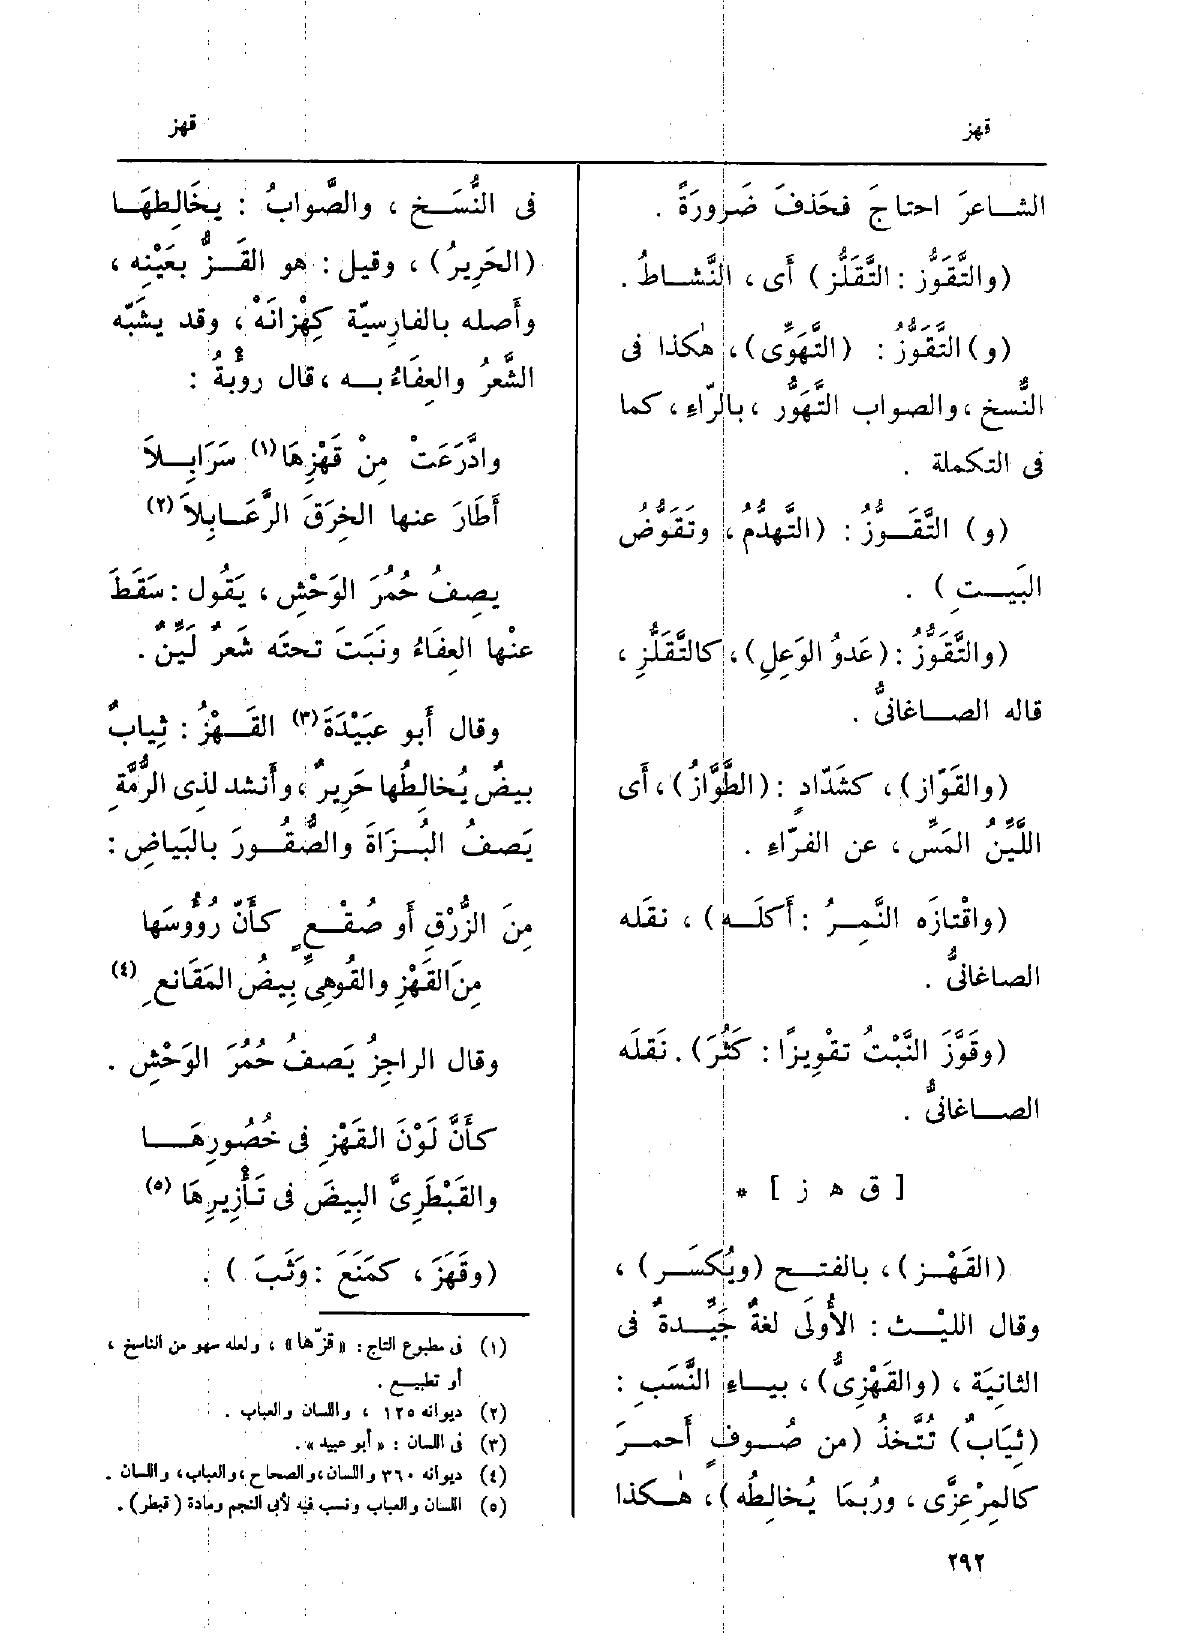 قهز
قهز
الشاعرَ احتاجَ فحَذفَ ضَرورَةً .
(والتَّقَوُّز : التَّقَلُّز) أَى ، النَّشاطُ .
(و) التَّقَوُّزُ : (التَّهَوِّى) ، هٰكذا فى
النُّسخ ، والصواب التَّهَوُّر ، بالرّاءِ ، كما
فى التكملة .
(و) التَّقَوُّزُ : (التَّهدُّم ، وتقَوُّض
البَيتِ ) .
(والتَّقَوُّزُ : (عَدوُ الوَعِلِ) ، كالتَّقَلُّزِ ،
قاله الصاغانىُّ .
(والقَوّاز) ، كشَدّادٍ : (الطَّوَّازُ) ، أَى
اللَّيِّنُ المَسِّ ، عن الفرّاءِ .
(واقْتازَه النَّمِرُ : أَكلَه) ، نقَله
الصاغانىُّ .
(وقَوَّزَ النَّبْتُ تقويزًا : كَثُرَ) . نقَلَه
الصاغانىُّ .
[ ق ه ز ] *
(القَهْز) ، بالفتح (ويُكسَر) ،
وقال الليْث : الأُولَى لغةٌ جَيِّدةٌ فى
الثانِيَة ، (والقَهْزِىُّ) ، بياءِ النَّسَبِ :
(ثِيَابٌ) تُتَّخذُ (من صُوفٍ أَحمرَ
كالمِرْعِزَّى ، ورُبمَا يُخالِطُه) ، هٰكذا
فى النُّسَخ ، والصَّوابُ : يخَالِطهَا
(الحَرِيرُ) ، وقيل : هو القَزُّ بعَيْنِه ،
وأَصله بالفارِسيّة كِهْزانَهْ ، وقد يشبَّه
الشَّعرُ والعِفَاءُ به ، قال رؤبةُ :
وادَّرَعَتْ مِنْ قَهْزِهَا (١) سَرَابِلاَ
أَطَارَ عنها الخِرَقَ الرَّعَابِلاَ (٢)
يصِفُ حُمُرَ الوَحْشِ ، يَقُول : سَقَطَ
عنْها العِفَاءُ ونَبَتَ تحتَه شَعرٌ لَيِّنٌ .
وقال أَبو عبَيْدَةَ (٣) القَهْزُ : ثِيابٌ
بيضٌ يُخالِطُها حَرِيرٌ ، وأَنشد لذِى الرُّمَّةِ
يَصفُ البُزاةَ والصُّقُورَ بالبَياضِ :
مِنَ الزُّرْقِ أَو صُقْعٍ كأَنّ رُؤوسَها
مِنَ القَهْزِ والقُوهِىِّ بِيضُ المَقَانعِ (٤)
وقال الراجِزُ يَصفُ حُمُرَ الوَحْشِ .
كأَنَّ لَوْنَ القَهْزِ فى خُصُورِهَا
والقَبْطَرِىَّ البِيضَ فى تَأْزِيرِهَا (٥)
(وقَهَزَ ، كمنَعَ : وَثَبَ ) .
(١) فى مطبوع التاج : « قزّها » ، ولعله سهو من الناسخ ،
أو تطبيع .
(٢) ديوانه ١٢٥ ، واللسان والعباب .
(٣) فى اللسان : « أبو عبيد » .
(٤) ديوانه ٣٦٠ واللسان ، والصحاح ، والعباب ، واللسان .
(٥) اللسان والعباب ونسب فيه لأبى النجم ومادة ( قبطر ) .
٢٩٢